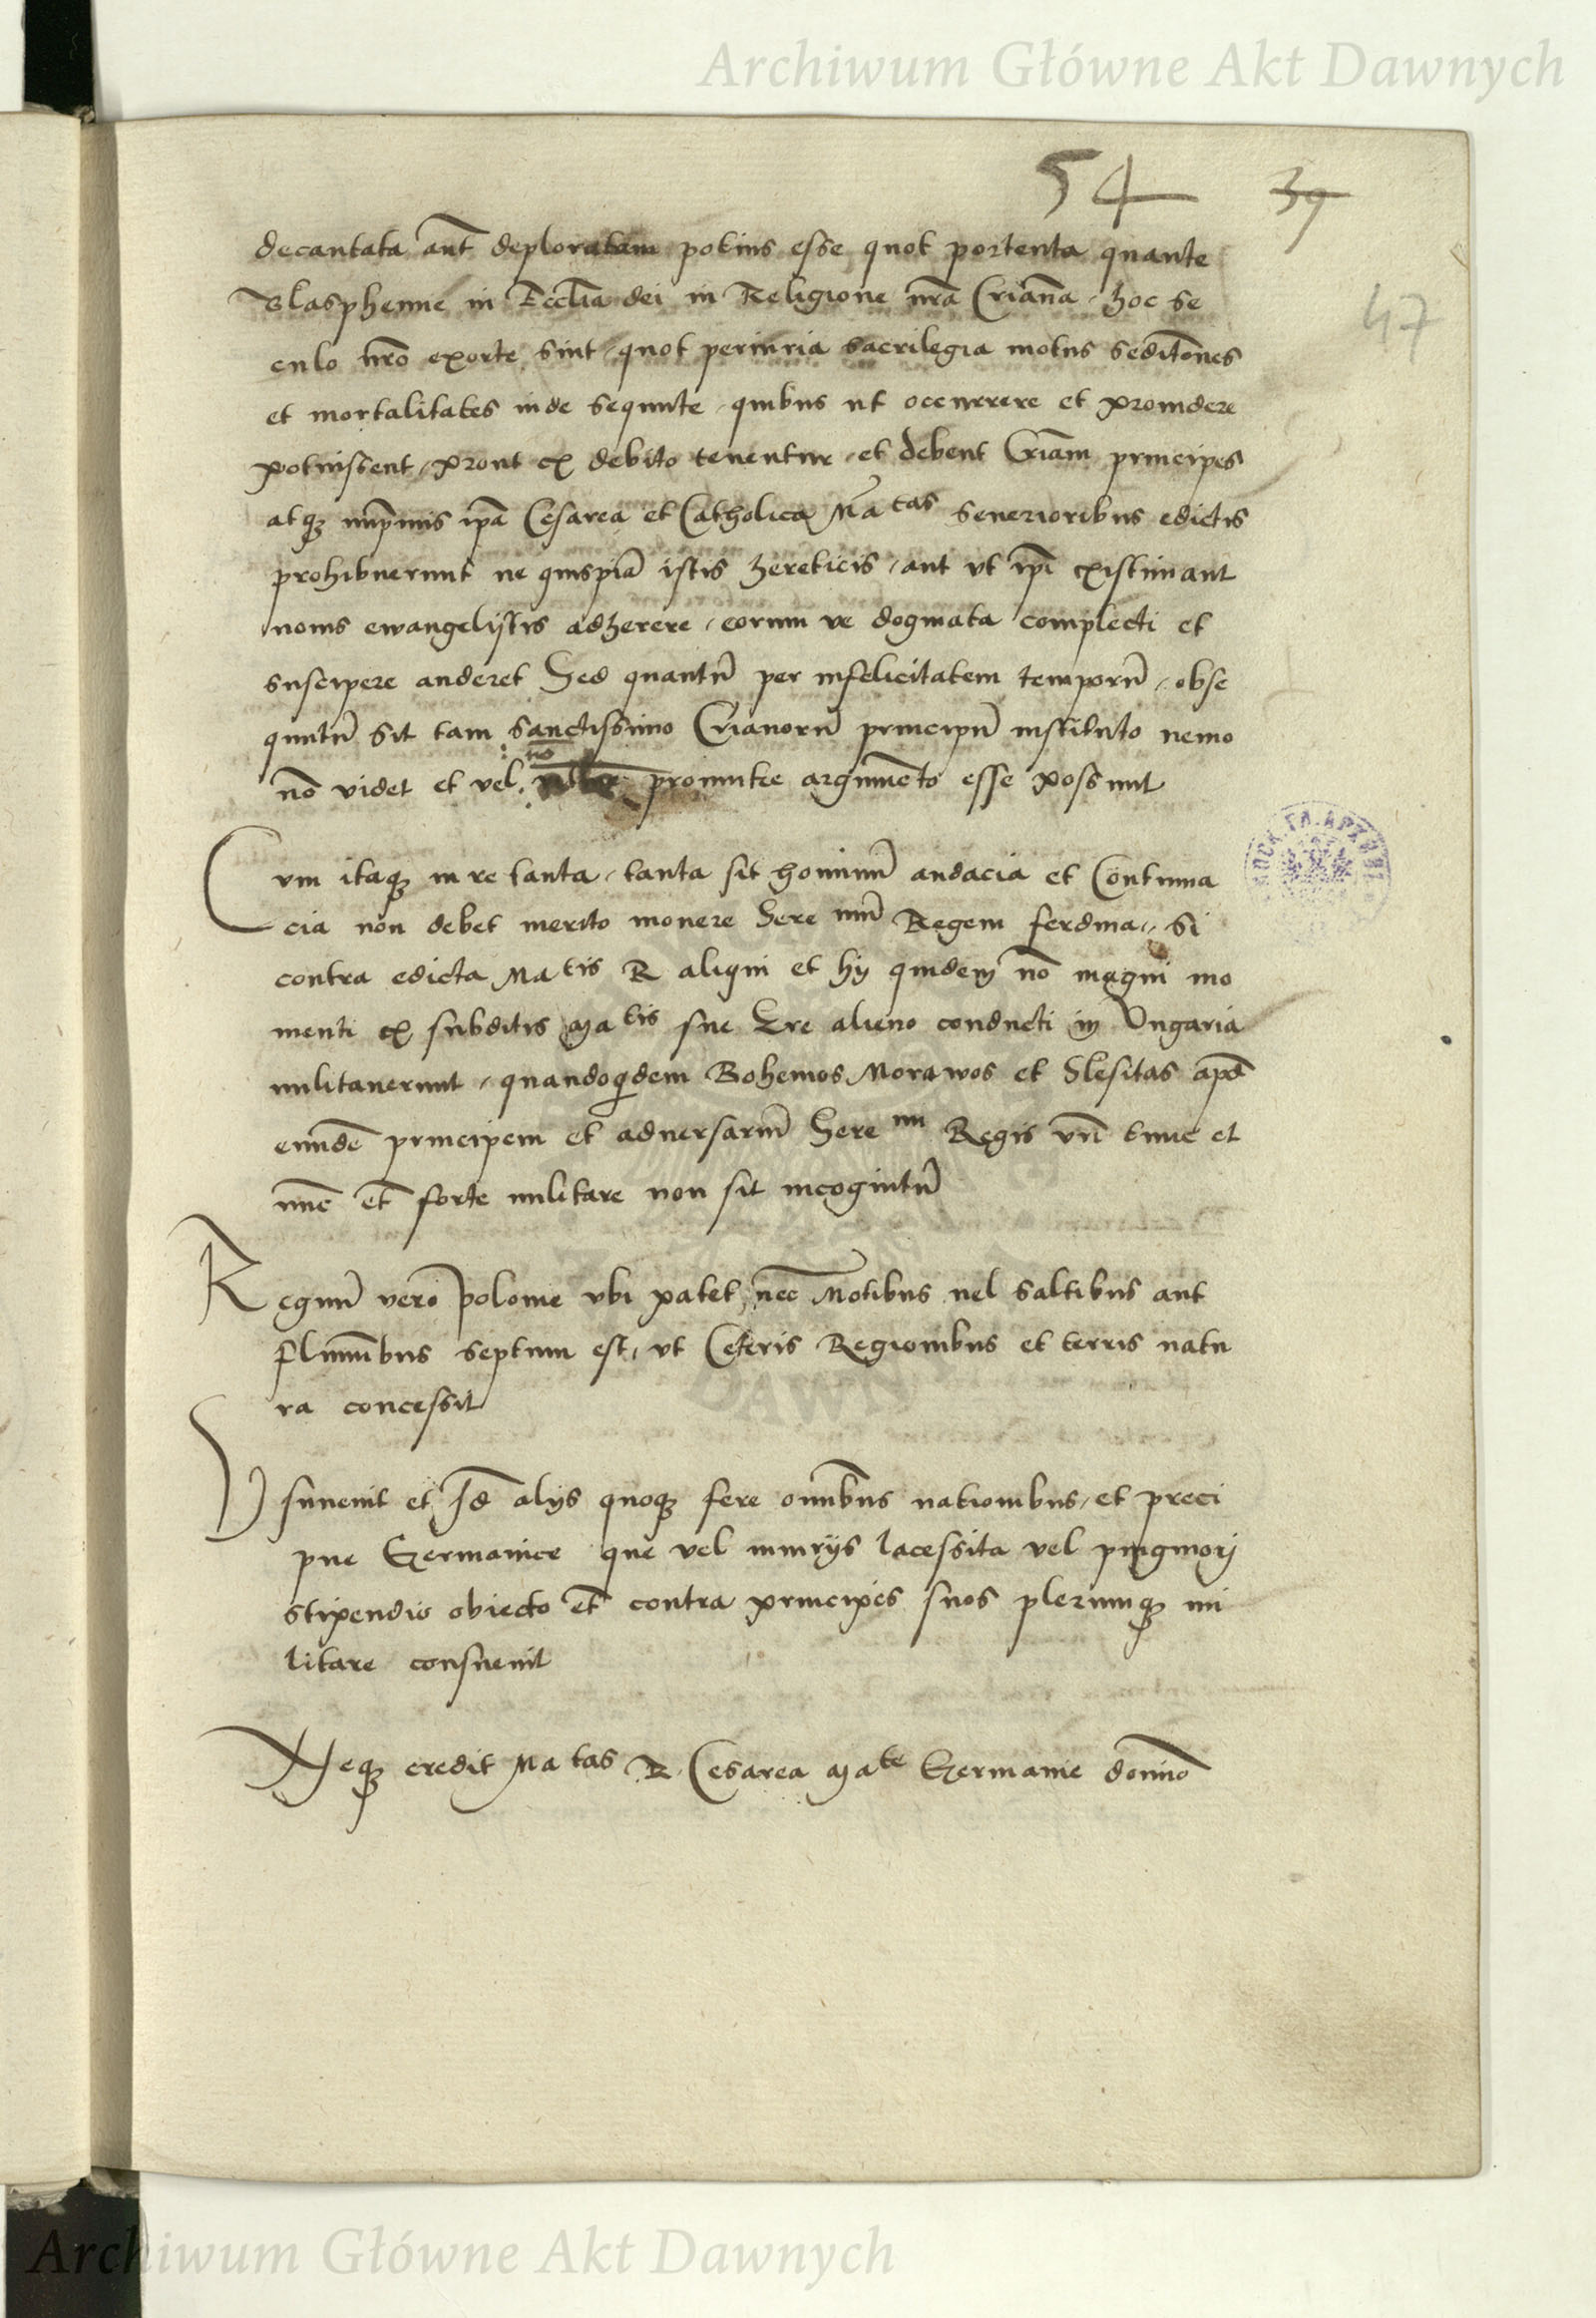 Archiwum Główne Akt Dawnych
54 39
47
decantata aut deploratam potius esse quot portenta quante
Blasphemie in Ecclia dei in Religione nra Criana hoc se
culo nro exorte sint quot periuria sacrilegia motus seditiones
et mortalitates inde sequute quibus ut occurrere et prouidere
potuissent prout ex debito tenentur et debent Criam principes
atq imprimis ipa Cesarea et Catholica Matas seuerioribus edictis
prohibuerunt ne quispia istis hereticis aut vt ipi existimant
nouis ewangelistis adherere eorum ve dogmata complecti et
suscipere auderet Sed quantu per infelicitatem temporu obse
quutu sit tam sanctissimo Crianoru principu instituto nemo
no videt et vel prouintie argumeto esse possunt
Cum itaq in re tanta tanta sit hominu audacia et Contuma
cia non debet merito mouere Sere mu Regem ferdina si
contra edicta Matis R aliqui et hij quidem no magni mo
menti ex subditis Matis sue Ere alieno conducti in Vngaria
militauerunt quandoqdem Bohemos Morawos et Slesitas apd
eunde principem et aduersariu Sere mi Regis vn tunc et
nunc et forte militare non sit incognitu
Regnu vero polonie vbi patet nec Motibus uel saltibus aut
fluminibus septum est vt Ceteris Regionibus et terris natu
ra concessit
Vsuuenit et Id alijs quoq fere omnibus nationibus et preci
pue Germanice que vel iniurijs lacessita vel pinguiori
stipendio obiecto et contra principes suos plerumq mi
litare consueuit
Neq credit Matas R Cesarea Mate Germanie domino
Archiwum Główne Akt Dawnych